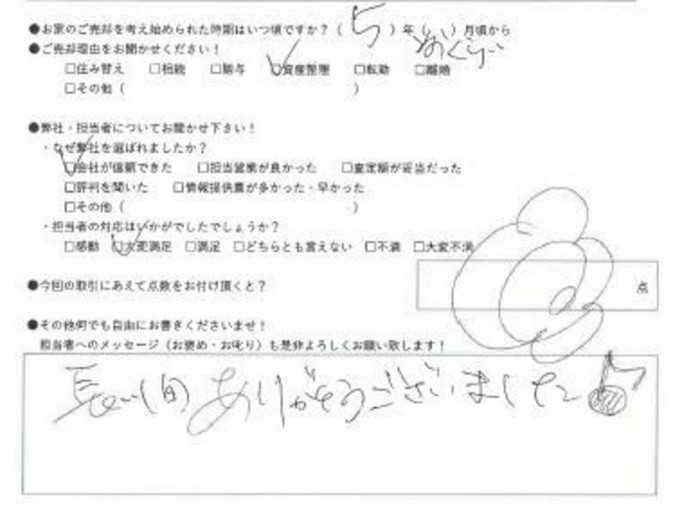 ●お家のご売却を考え始められた時期はいつ頃ですか？（ 5 ）年（ ）月頃から
●ご売却理由をお聞かせください！
□住み替え □相続 □贈与 ☑資産整理 □転勤 □離婚
□その他（ ）
●弊社・担当者についてお聞かせ下さい！
・なぜ弊社を選ばれましたか？
☑会社が信頼できた □担当営業が良かった □査定額が妥当だった
□評判を聞いた □情報提供量が多かった・早かった
□その他（ ）
・担当者の対応はいかがでしたでしょうか？
□感動 ☑大変満足 □満足 □どちらとも言えない □不満 □大変不満
●今回の取引にあえて点数をお付け頂くと？
点
●その他何でも自由にお書きくださいませ！
担当者へのメッセージ（お褒め・お叱り）も是非よろしくお願い致します！
長い間ありがとうございました♪